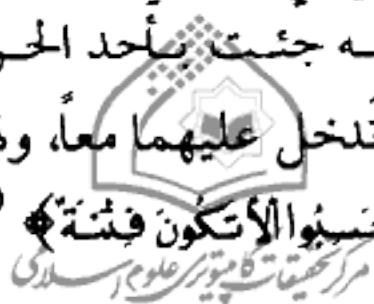 ـه جئت بأحد الحر
تدخل عليهما معاً، و
حسبوا ألا تكون فتنة﴾
مرکز تحقیقات کامپیوتری علوم اسلامی